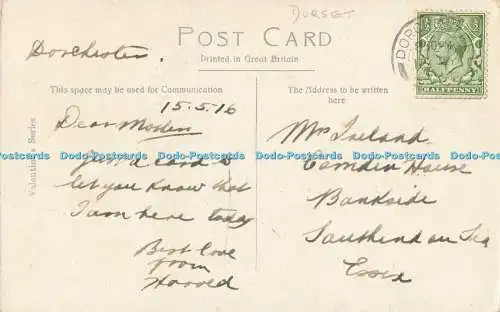 DORSET
POST CARD
Printed in Great Britain
Dorchester.
This space may be used for Communication
The Address to be written
here
HALFPENNY
Valentine's Series
15.5.16
Dear Mother
Just a card to
let you know that
I am here today
Best love
from
Harold
Mrs Ireland
Camden House
Bankside
Southend on Sea
Essex
Dodo-Postcards Dodo-Postcards Dodo-Postcards Dodo-Postcards Dodo-Postcards